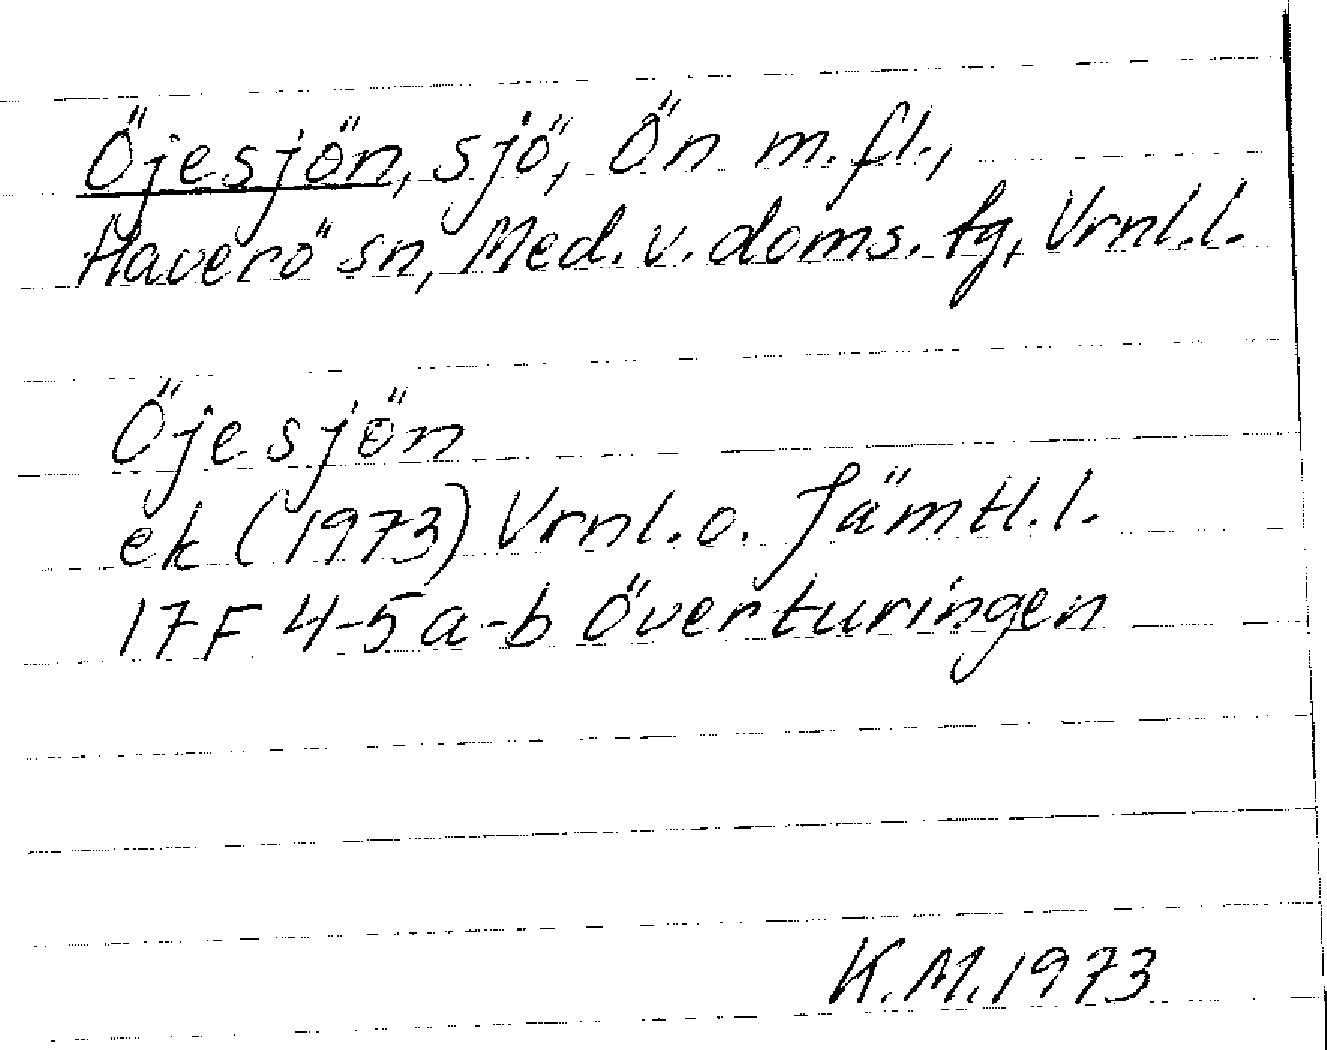 Öjesjön, sjö, Ön m.fl.,
Haverö sn, Med.v.doms.tg, Vrnl.l.
Öjesjön
ek (1973) Vrnl.o. Jämtl.l.
17F 4-5a-b Överturingen
K.M.1973